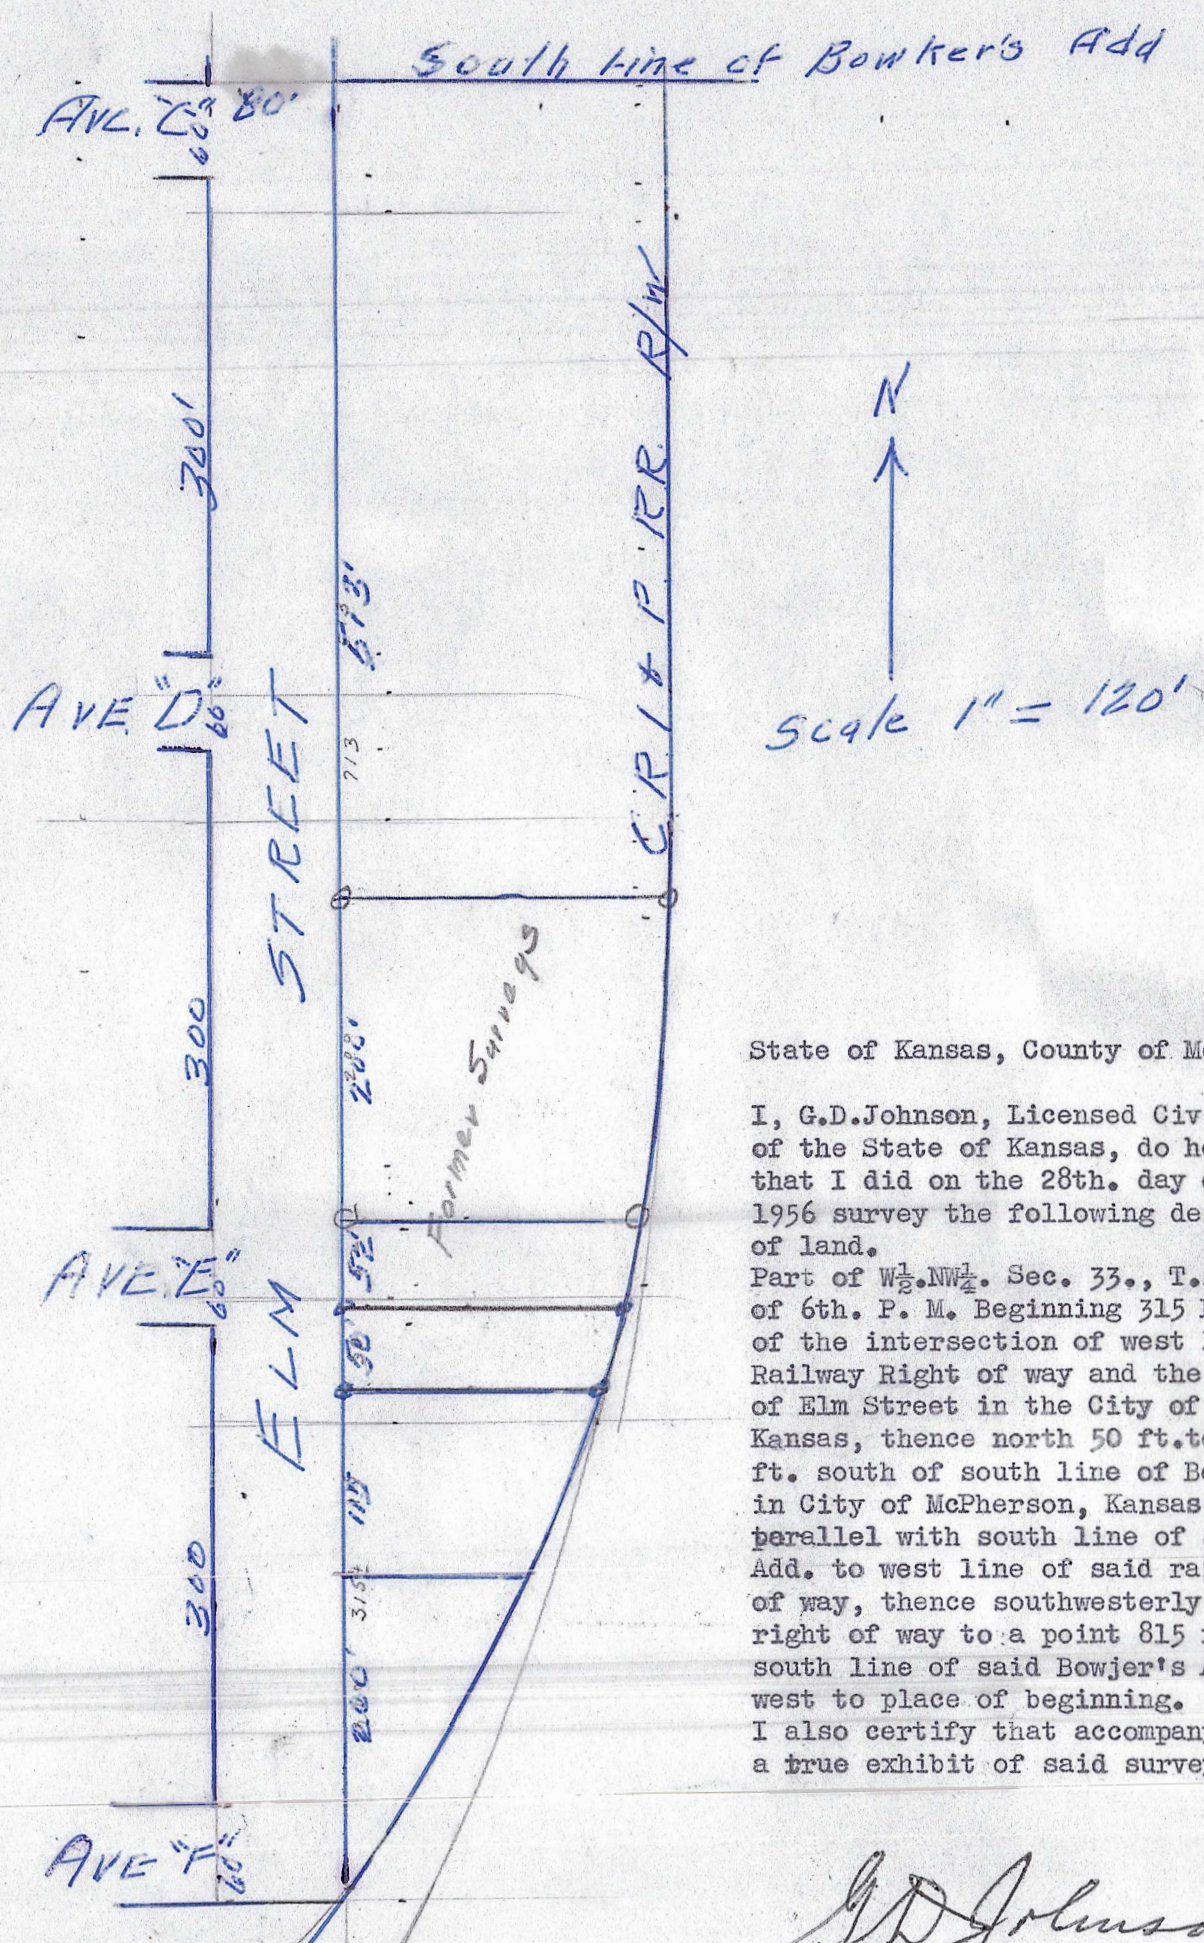 South Line of Bowker's Add
Ave. "C"
60'
80'
300'
513'
C R I & P. RR. R/W
N
Scale 1" = 120'
AVE. "D"
60'
713
ELM STREET
300
Former Surveys
288'
AVE. "E"
60'
52'
50'
115
315
300
200'
AVE "F"
60'
State of Kansas, County of Mc
I, G.D.Johnson, Licensed Civ
of the State of Kansas, do he
that I did on the 28th. day
1956 survey the following de
of land.
Part of W½.NW¼. Sec. 33., T.
of 6th. P. M. Beginning 315
of the intersection of west
Railway Right of way and the
of Elm Street in the City of
Kansas, thence north 50 ft.to
ft. south of south line of B
in City of McPherson, Kansas
parallel with south line of
Add. to west line of said ra
of way, thence southwesterly
right of way to a point 815
south line of said Bowjer's
west to place of beginning.
I also certify that accompan
a true exhibit of said surve
G D Johnso